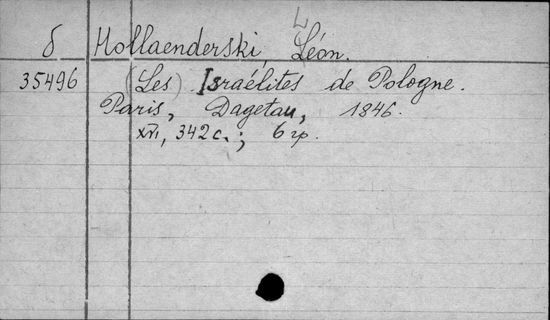 L
δ Hollaenderski, Léon.
35496 (Les) Israélites de Pologne.
Paris, Dagetau, 1846.
XVI, 342 c.; 6 гр.